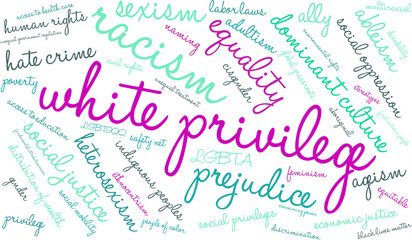 access to health care
human rights
unequal government regulation
sexism
labor laws
adultism
ally
multiracial
ableism
hate crime
racism
naming
equality
dominant culture
environmental rights
social oppression
civil rights
cisgender
poverty
unequal treatment
stereotypes
access to education
white privilege
aboriginal
LGBTQQ
safety net
LGBTA
social justice
indigenous peoples
feminism
ageism
heterosexism
prejudice
gender
ethnocentrism
equitable
social mobility
social privilege
economic justice
privilege
people of color
discrimination
black lives matter